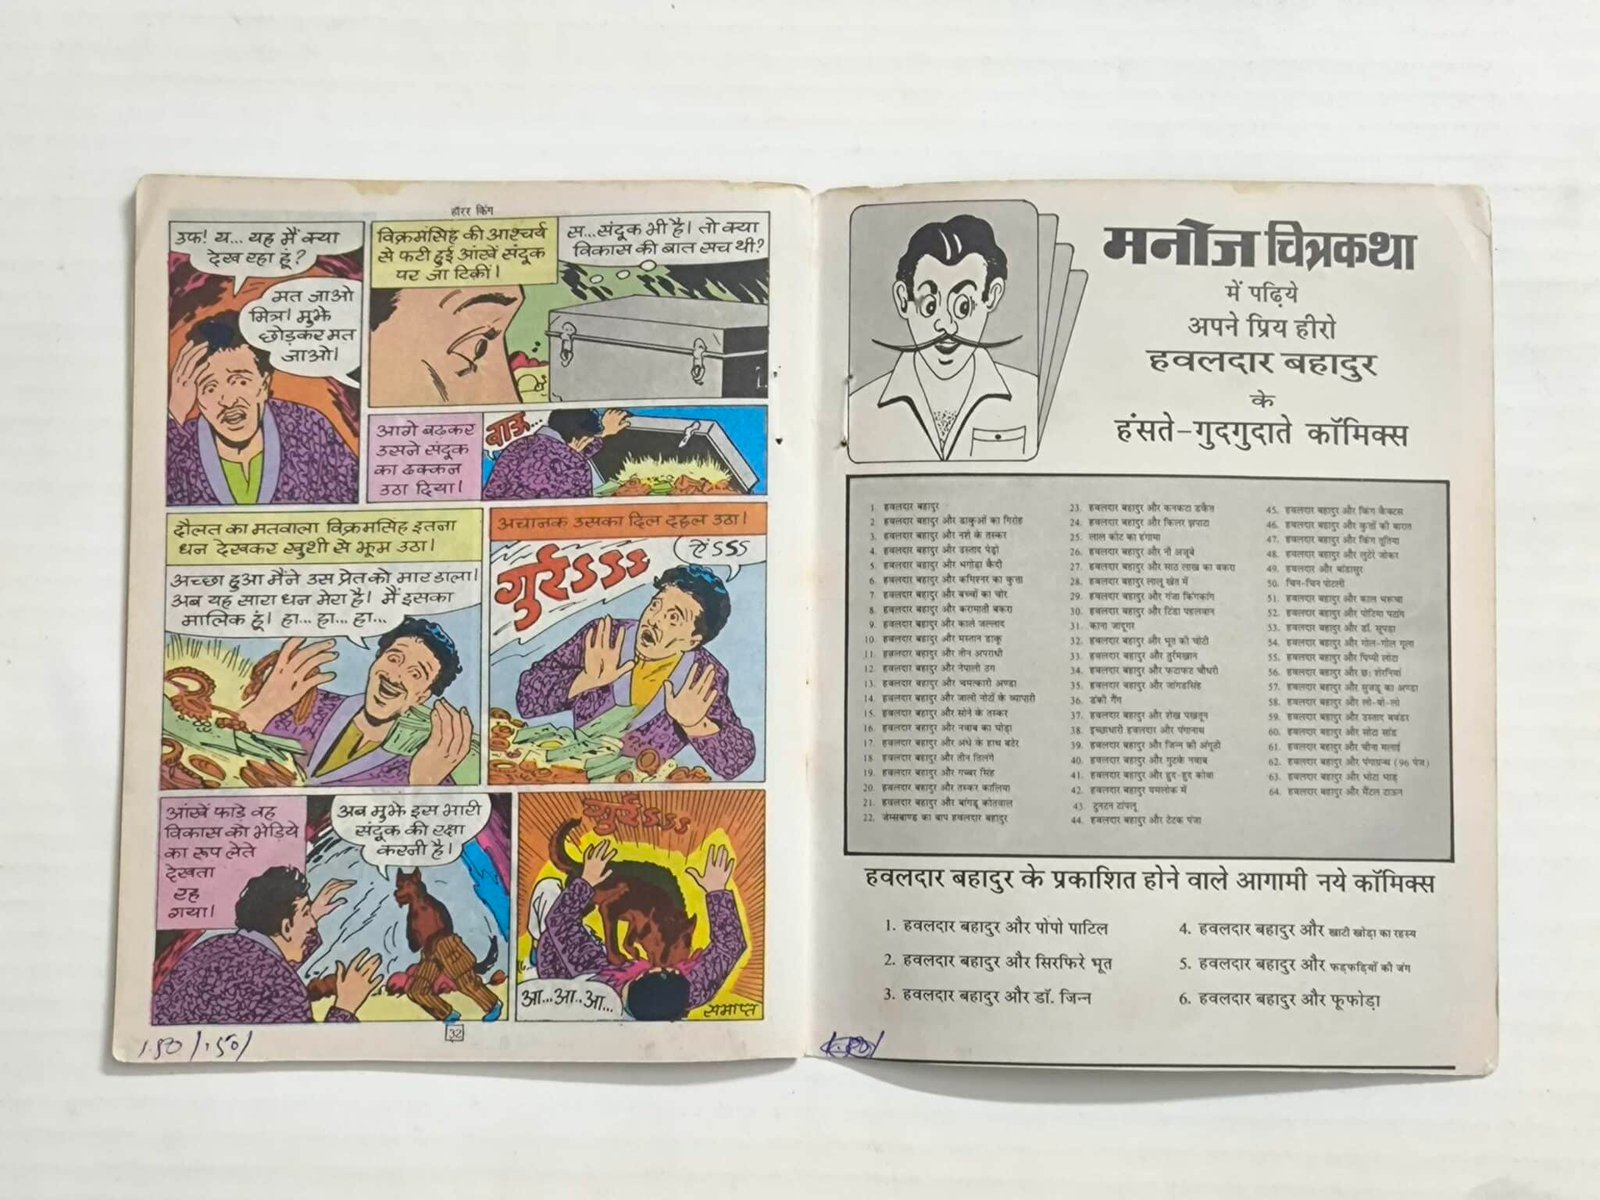 हॉरर किंग
उफ! य... यह मैं क्या
देख रहा हूं?
मत जाओ
मित्र। मुझे
छोड़कर मत
जाओ।
विक्रमसिंह की आश्चर्य
से फटी हुई आंखें संदूक
पर जा टिकीं।
स...संदूक भी है। तो क्या
विकास की बात सच थी?
आगे बढ़कर
उसने संदूक
का ढक्कन
उठा दिया।
वाऊ...
दौलत का मतवाला विक्रमसिंह इतना
धन देखकर खुशी से झूम उठा।
अच्छा हुआ मैंने उस प्रेत को मार डाला।
अब यह सारा धन मेरा है। मैं इसका
मालिक हूं। हा... हा... हा...
अचानक उसका दिल दहल उठा।
गुर्रsss
हैंsss
आंखें फाड़े वह
विकास को भेड़िये
का रूप लेते
देखता
रह
गया।
अब मुझे इस भारी
संदूक की रक्षा
करनी है।
गुर्रsss
आ...आ..आ...
समाप्त
32
1.50/1.50/
मनोज चित्रकथा
में पढ़िये
अपने प्रिय हीरो
हवलदार बहादुर
के
हंसते-गुदगुदाते कॉमिक्स
1. हवलदार बहादुर
2. हवलदार बहादुर और डाकुओं का गिरोह
3. हवलदार बहादुर और नशे के तस्कर
4. हवलदार बहादुर और उस्ताद पेड्रो
5. हवलदार बहादुर और भगोड़ा कैदी
6. हवलदार बहादुर और कमिश्नर का कुत्ता
7. हवलदार बहादुर और बच्चों का चोर
8. हवलदार बहादुर और करामाती बकरा
9. हवलदार बहादुर और काले जल्लाद
10. हवलदार बहादुर और मस्तान डाकू
11. हवलदार बहादुर और तीन अपराधी
12. हवलदार बहादुर और नेपाली ठग
13. हवलदार बहादुर और चमत्कारी अण्डा
14. हवलदार बहादुर और जाली नोटों के व्यापारी
15. हवलदार बहादुर और सोने के तस्कर
16. हवलदार बहादुर और नवाब का घोड़ा
17. हवलदार बहादुर और अंधे के हाथ बटेर
18. हवलदार बहादुर और तीन तिलंगे
19. हवलदार बहादुर और गब्बर सिंह
20. हवलदार बहादुर और तस्कर कालिया
21. हवलदार बहादुर और बांगड़ू कोतवाल
22. जेम्सबाण्ड का बाप हवलदार बहादुर
23. हवलदार बहादुर और कनकटा डकैत
24. हवलदार बहादुर और किलर झपाटा
25. लाल कोट का हंगामा
26. हवलदार बहादुर और नौ अजूबे
27. हवलदार बहादुर और साठ लाख का बकरा
28. हवलदार बहादुर लालू खेत में
29. हवलदार बहादुर और गंजा किंगकांग
30. हवलदार बहादुर और टिंडा पहलवान
31. काना जादूगर
32. हवलदार बहादुर और भूत की चोटी
33. हवलदार बहादुर और तुर्रमखान
34. हवलदार बहादुर और फटाफट चौधरी
35. हवलदार बहादुर और जांगड़सिंह
36. डंकी गैंग
37. हवलदार बहादुर और शेख पखतून
38. इच्छाधारी हवलदार और पंगानाथ
39. हवलदार बहादुर और जिन्न की अंगूठी
40. हवलदार बहादुर और गुटके नवाब
41. हवलदार बहादुर और हुर-हुर कोबा
42. हवलदार बहादुर यमलोक में
43. टुनटन टांपलू
44. हवलदार बहादुर और टेटक पंजा
45. हवलदार बहादुर और किंग कैक्टस
46. हवलदार बहादुर और कुत्तों की बारात
47. हवलदार बहादुर और किंग तूतिया
48. हवलदार बहादुर और लुटेरे जोकर
49. हवलदार बहादुर और भांडासुर
50. चिन-चिन पोटली
51. हवलदार बहादुर और काल भरूचा
52. हवलदार बहादुर और पोटिया पठान
53. हवलदार बहादुर और डॉ. सूपड़ा
54. हवलदार बहादुर और गोल-गोल गूला
55. हवलदार बहादुर और पिप्पी लोटा
56. हवलदार बहादुर और छः शेरनियां
57. हवलदार बहादुर और का अण्डा
58. हवलदार बहादुर और लो-बो-लो
59. हवलदार बहादुर और उस्ताद बवंडर
60. हवलदार बहादुर और सोटा सांड
61. हवलदार बहादुर और चीना मलाई
62. हवलदार बहादुर और पंगाग्रन्थ (96 पेज)
63. हवलदार बहादुर और भोटा भाड़
64. हवलदार बहादुर और मैंटल टाऊन
हवलदार बहादुर के प्रकाशित होने वाले आगामी नये कॉमिक्स
1. हवलदार बहादुर और पोपो पाटिल
2. हवलदार बहादुर और सिरफिरे भूत
3. हवलदार बहादुर और डॉ. जिन्न
4. हवलदार बहादुर और खाटी खोड़ा का रहस्य
5. हवलदार बहादुर और फड़फड़ियों की जंग
6. हवलदार बहादुर और फूफोड़ा